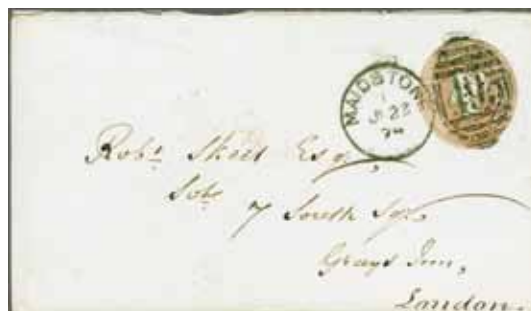 MAIDSTON
1
JY 22
Robt. Skeet Esq.,
Solr.
7 South Sqr.
Grays Inn,
London.